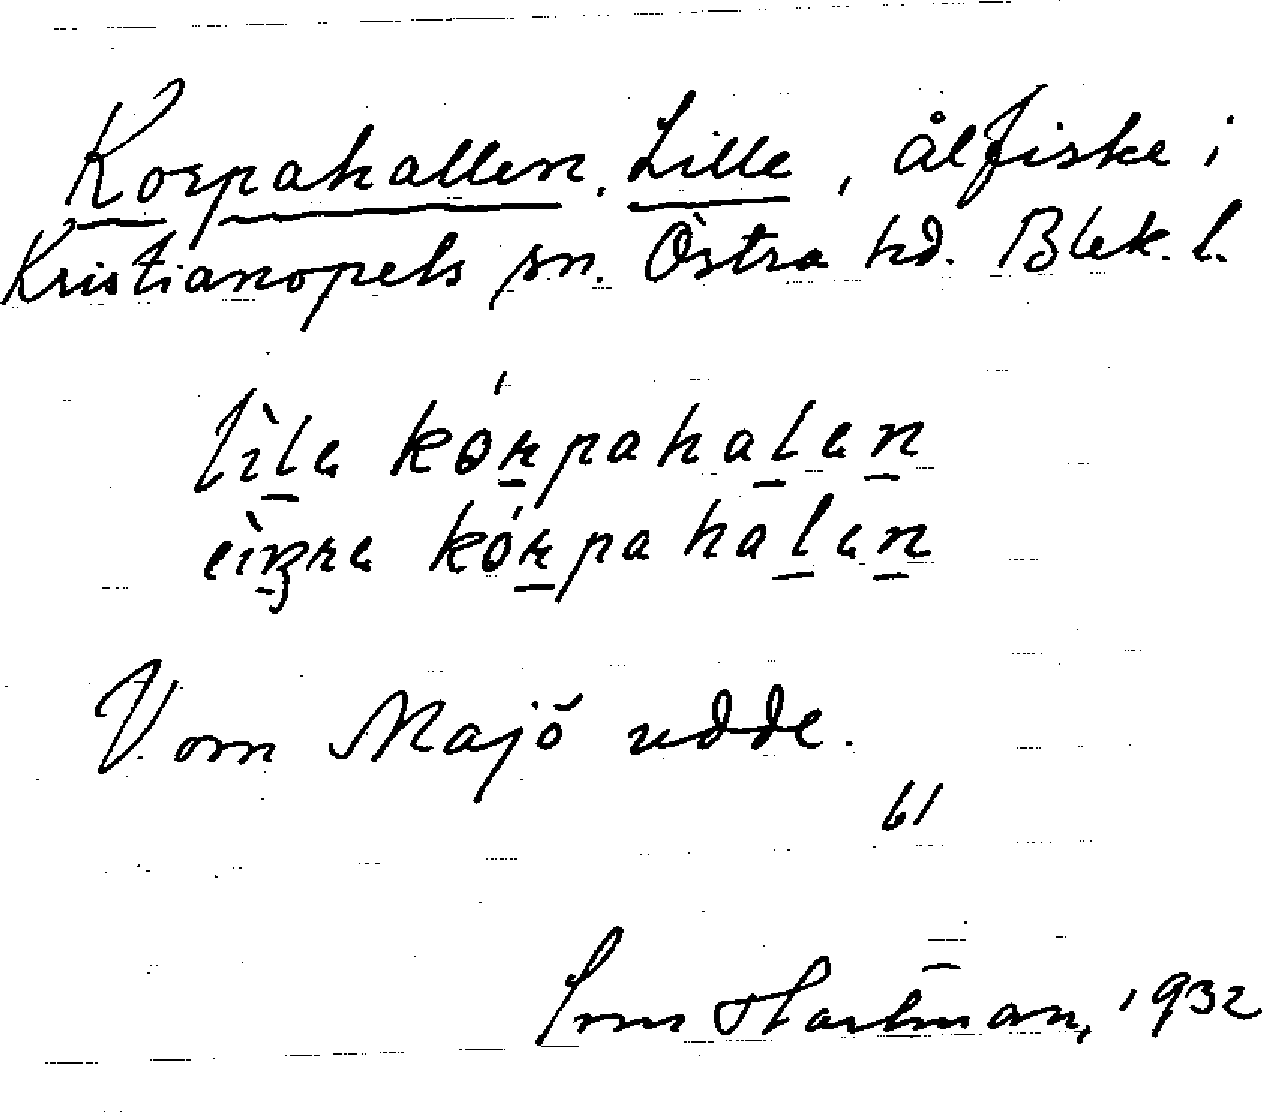 Korpahallen, Lille, ålfiske i
Kristianopels sn. Östra hd. Blek. l.
lìla kórpahalan
kórpahalan
V. om Majö udde.
61
Hartman, 1932